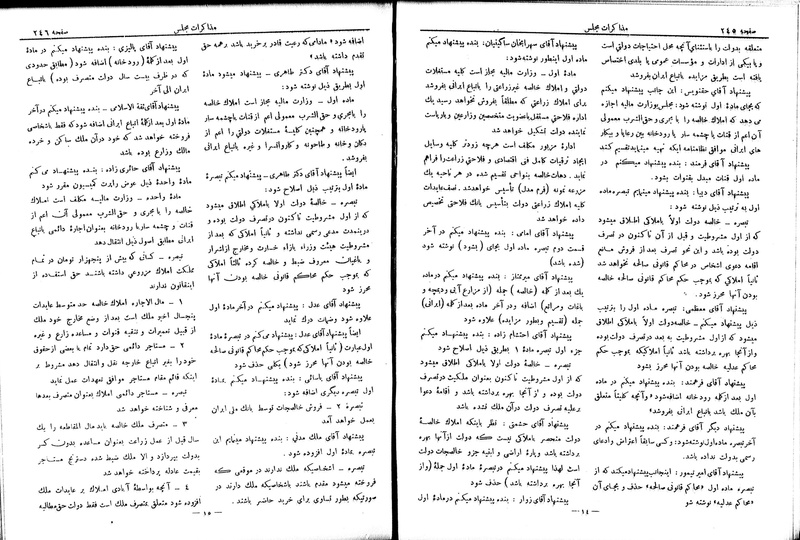 صفحه ۲۴۵
مذاکرات مجلس
متعلقه بدولت را باستثنای آنچه محل احتیاجات دولتی است
و یا بیکی از ادارات و مؤسسات عمومی یا بلدی اختصاص
یافته است بطریق مزایده باتباع ایران بفروشد
پیشنهاد آقای حقنویس : این جانب پیشنهاد میکنم
که بجای مادهٔ اول نوشته شود : مجلس بوزارت مالیه اجازه
می دهد که املاک خالصه را با مجری و حق الشرب معمولی
آن اعم از قنات یا چشمه سار یا رودخانه بین رعایا و بیکار
های ایرانی موافق نظامنامه ایکه تهیه مینماید تقسیم کنند
پیشنهاد آقای فرمند : بنده پیشنهاد میکنم در
ماده اول قنات مبدل بقنوات بشود .
پیشنهاد آقای دیبا : بنده پیشنهاد مینمایم تبصره ماده
اول به ترتیب ذیل نوشته شود :
تبصره - خالصه دولت اولاً باملاکی اطلاق میشود
که از اول مشروطیت و قبل از آن تاکنون در تصرف
دولت بوده باشد و این نحو تصرف بعد از فروش مانع
اقامه دعوی اشخاص در محاکم قانونی نخواهد شد
ثانیاً املاکی که بموجب حکم محاکم قانونی صالحه خالصه
بودن آنها محرز شود .
پیشنهاد آقای معظمی : تبصره ماده اول را بترتیب
ذیل پیشنهاد میکنم - خالصه دولت اولاً باملاکی اطلاق
میشود که از اول مشروطیت به بعد در تصرف دولت بوده
و از آنجا بهره برداشته باشد ثانیاً املاکیکه بموجب حکم
محاکم عدلیه خالصه بودن آنها محرز بشود
پیشنهاد آقای فرهمند : بنده پیشنهاد میکنم در ماده
اول بعد از کلمه رودخانه اضافه شود « و آنچه کلیتاً متعلق
بآن ملک باشد باتباع ایرانی بفروشد »
پیشنهاد دیگر آقای فرهمند : بنده پیشنهاد میکنم در
آخر تبصره ماده اول نوشته شود : و کسی سابقاً اعتراض و ادعای
رسمی بدولت نداده باشد .
پیشنهاد آقای امیر تیمور : اینجانب پیشنهاد میکند که از
تبصره ماده اول « محاکم قانونی صالحه » حذف و بجای آن
« محاکم عدلیه » نوشته شو
پیشنهاد آقای سهراب خان ساگینیان : بنده پیشنهاد میکنم
ماده اول اینطور نوشته شود :
مادهٔ اول - وزارت مالیه مجاز است کلیه مستغلات
دولتی و املاک خالصه غیر زراعتی را باتباع ایرانی بفروشد
برای املاک زراعتی که مطلقاً بفروش نخواهد رسید یک
اداره فلاحتی مستقل با عضویت متخصصین وزارتین و با ریاست
نماینده دولت تشکیل خواهد شد
ادارهٔ مزبور مکلف است هرچه زودتر کلیه وسایل
ایجاد ترقیات کامل فنی اقتصادی و فلاحتی زراعت را فراهم
نماید . دهات خالصه بنواحی تقسیم شده در هر ناحیه یک
مزرعه نمونه (فرم مدل) تأسیس خواهد شد . نصف عایدات
کلیه املاک زراعتی دولت بتأسیس بانک فلاحتی تخصیص
داده خواهد شد
پیشنهاد آقای امامی : بنده پیشنهاد میکنم در آخر
قسمت دوم تبصره ماده اول بجای (بشود) نوشته شود
(شده باشد)
پیشنهاد آقای میرممتاز : بنده پیشنهاد میکنم در ماده
یک بعد از کلمه (خالصه) جمله (از مزارع آبی و دیمچه و
باغات و مراتع) اضافه و در آخر ماده بعد از کلمه (ایرانی)
جمله (تقسیم و بطور مزایده) علاوه شود
پیشنهاد آقای احتشام زاده : بنده پیشنهاد میکنم
جزء اول تبصره مادهٔ ۱ بطریق ذیل اصلاح شود
تبصره - خالصهٔ دولت اولا باملاکی اطلاق میشود
که از اول مشروطیت تا کنون بعنوان ملکیت در تصرف
دولت بوده و از آنجا بهره برداشته باشد و اقامهٔ دعوا
بر علیه تصرف دولت در آن ملک نشده باشد
پیشنهاد آقای حشمتی : نظر باینکه املاک خالصهٔ
دولت منحصر باملاکی نیست که دولت از آنها بهره
برداشته باشد و پارهٔ اراضی و ابنیه جزو خالصجات دولت
است لهذا پیشنهاد میکنم در تبصرهٔ مادهٔ اول جملهٔ (و از
آنجا بهره برداشته باشد ) حذف شود
پیشنهاد آقای زوار : بنده پیشنهاد میکنم در مادهٔ اول
— ۱٤ —
مذاکرات مجلس
صفحه ۲٤٦
اضافه شود « مادامی که رعیت قادر بر خرید باشد رعیه حق
تقدم داشته باشد »
پیشنهاد آقای دکتر طاهری - پیشنهاد میشود مادهٔ
اول بطریق ذیل نوشته شود :
ماده اول - وزارت مالیه مجاز است املاک خالصه
را با مجری و حق الشرب معمولی آن اعم از قنات یا چشمه سار
یا رودخانه و همچنین کلیهٔ مستغلات دولتی را اعم از
دکان و خانه و طاحونه و کاروانسرا و غیره باتباع ایرانی
بفروشد .
ایضاً پیشنهاد آقای دکتر طاهری - پیشنهاد میکنم تبصرهٔ
مادهٔ اول بترتیب ذیل اصلاح شود :
تبصره - خالصهٔ دولت اولا باملاکی اطلاق میشود
که از اول مشروطیت تاکنون در تصرف دولت بوده و
در این مدت مدعی رسمی نداشته و ثانیاً املاکی که بعد از
مشروطیت هیئت وزراء بازاء خسارت و مخارج اشرار
و یاغیان معروف ضبط و خالصه کرده ثالثاً املاکی
که بموجب حکم محاکم قانونی خالصه بودن آنها
محرز شود
پیشنهاد آقای عدل : بنده پیشنهاد میکنم در آخر مادهٔ اول
علاوه شود وضیات درک نماید
ایضاً پیشنهاد آقای عدل : بنده پیشنهاد می کنم در تبصرهٔ مادهٔ
اول عبارت ( ثانیاً املاکی که بموجب حکم محاکم قانونی صالحه
خالصه بودن آنها محرز شود ) بکلی حذف شود
پیشنهاد آقای یاسائی : بنده پیشنهاد میکنم بمادهٔ
اول تبصره دیگری اضافه شود :
تبصرهٔ ۲ - فروش خالصجات توسط بانک ملی ایران
بعمل خواهد آمد
پیشنهاد آقای ملک مدنی : بنده پیشنهاد مینمایم این
تبصره بمادهٔ اول افزوده شود .
تبصره - اشخاصیکه ملک ندارند در موقعی که
فروخته میشود مقدم باشند باشخاصیکه ملک دارند در
صورتیکه بطور تساوی برای خرید حاضر باشند .
پیشنهاد آقای پالیزی : بنده پیشنهاد میکنم در مادهٔ
اول بعد از کلمهٔ ( رودخانه ) اضافه شود ( مطابق حدودی
که در ظرف بیست سال دولت متصرف بوده ) باتباع
ایران الی آخر
پیشنهاد آقای ثقة الاسلامی - بنده پیشنهاد میکنم در آخر
مادهٔ اول بعد از کلمهٔ اتباع ایرانی اضافه شود که فقط باشخاصی
فروخته خواهد شد که خود در آن ملک ساکن و خرده
مالک و زارع بوده باشد
پیشنهاد آقای حائری زاده : بنده پیشنهاد می کنم
مادهٔ واحدهٔ ذیل عوض راپرت کمیسیون مقرر شود
مادهٔ واحده - وزارت مالیه مکلف است املاک
خالصه را با مجری و حق الشرب معمولی آن اعم از
قنات و چشمه سار یا رودخانه بعنوان اجارهٔ دائمی باتباع
ایرانی مطابق اصول ذیل انتقال دهد
تبصره - کسانی که بیش از پنجهزار تومان در تمام
مملکت املاک مزروعی داشته باشند حق استفاده از
اینقانون ندارند
۱ - مال الاجاره املاک خالصه حد متوسط عایدات
پنجسال اخیر ملک است بعد از وضع مخارج خود ملک
از قبیل تعمیرات و تنقیه قنوات و مساعده زارع و غیره
۲ - مستاجر دائمی حق دارد تمام یا بعضی از حقوق
خود را بغیر اتباع خارجه نقل و انتقال دهد مشروط بر
اینکه قائم مقام مستاجر موافق تعهدات عمل نماید
تبصره - مستاجر دائمی املاک بعنوان متصرف بعدها
معرفی و شناخته خواهد شد
۳ - متصرف ملک خالصه باید مال المقاطعه را یک
سال قبل از عمل زراعت بعنوان مساعده بدون کسر
بدولت بپردازد و الا ملک ضبط شده دسترنج مستاجر
بقیمت عادله پرداخته خواهد شد
٤ - آنچه بواسطهٔ آبادی املاک بر عایدات ملک
افزوده شود متعلق بمتصرف ملک است فقط دولت حق مطالبه
— ۱٥ —